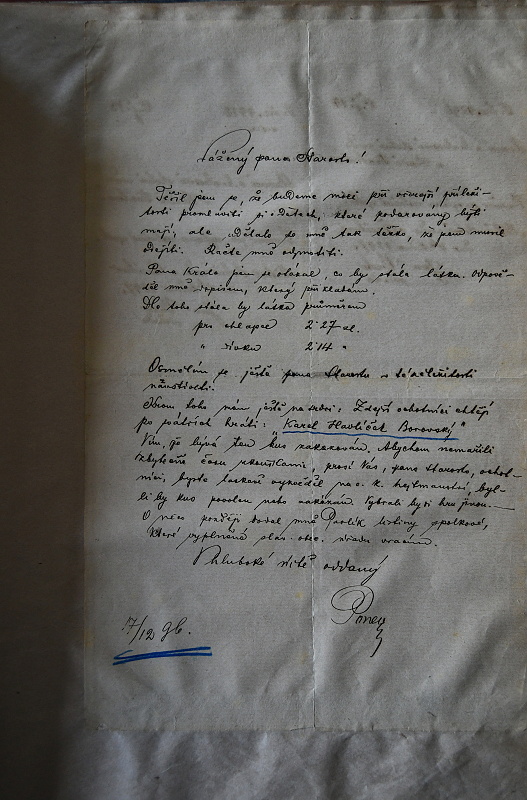 Vážený pane Starosto!
Těšil jsem se, že budeme moci při včerejší příleži-
tosti promluviti si o dětech, které podarovány býti
mají, ale udělalo se mně tak těžko, že jsem musil
odejíti. Račte mně odpustiti.
Pana Krále jsem se otázal, co by stála látka. Odpově-
děl mně dopisem, který přikládám.
Dle toho stála by látka průměrem
pro chlapce 2·27 zl.
" dívku 2·14 "
Osmělím se ještě pane Starosto o té záležitosti
Krom toho mám ještě na srdci: Zdejší ochotníci chtějí
po svátcích hráti: "Karel Havlíček Borovský"
Vím, že bývá ten kus zakazován. Abychom nemařili
zbytečně času zkouškami, prosí Vás, pane Starosto, ochot-
níci, byste laskavě vyzvěděl na c. k. hejtmanství, byl-
li by kus povolen nebo zakázán. Vybrali by si hru jinou.
O něco později dodal mně Pavlík listiny spolkové,
které vyplněné slav. obec. úřadu vracím.
V hluboké úctě oddaný
17/12 96.